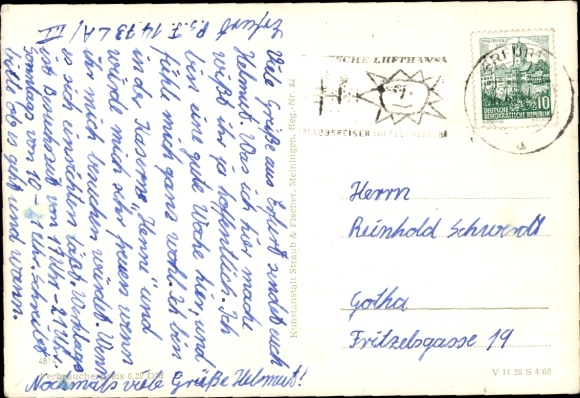 Erfurt Ps. F. 1473 LA/III
Viele Grüße aus Erfurt sendet euch
Helmut. Was ich hier mache
wißt ihr ja hoffentlich. Ich
bin eine gute Woche hier, und
fühle mich ganz wohl. Ich bin
in der Kaserne "Henne" und
würde mich sehr freuen wenn
ihr mich besuchen würdet. Wenn
es sich einrichten läßt. Werktags
ist Besuchszeit von 17 Uhr - 21 Uhr
Sonntags von 10 - Uhr. Schreibt
bitte ob es geht und wann.
Nochmals viele Grüße Helmut!
4814
Verbraucherpreis 0,20 DM
Kunstanstalt Straub & Fischer, Meiningen, Reg.-Nr. 84
DEUTSCHE LUFTHANSA
ERFURT
DEUTSCHE
DEMOKRATISCHE REPUBLIK
10
Herrn
Reinhold Schwerdt
Gotha
Fritzelsgasse 19
V 11 28 S 4/60